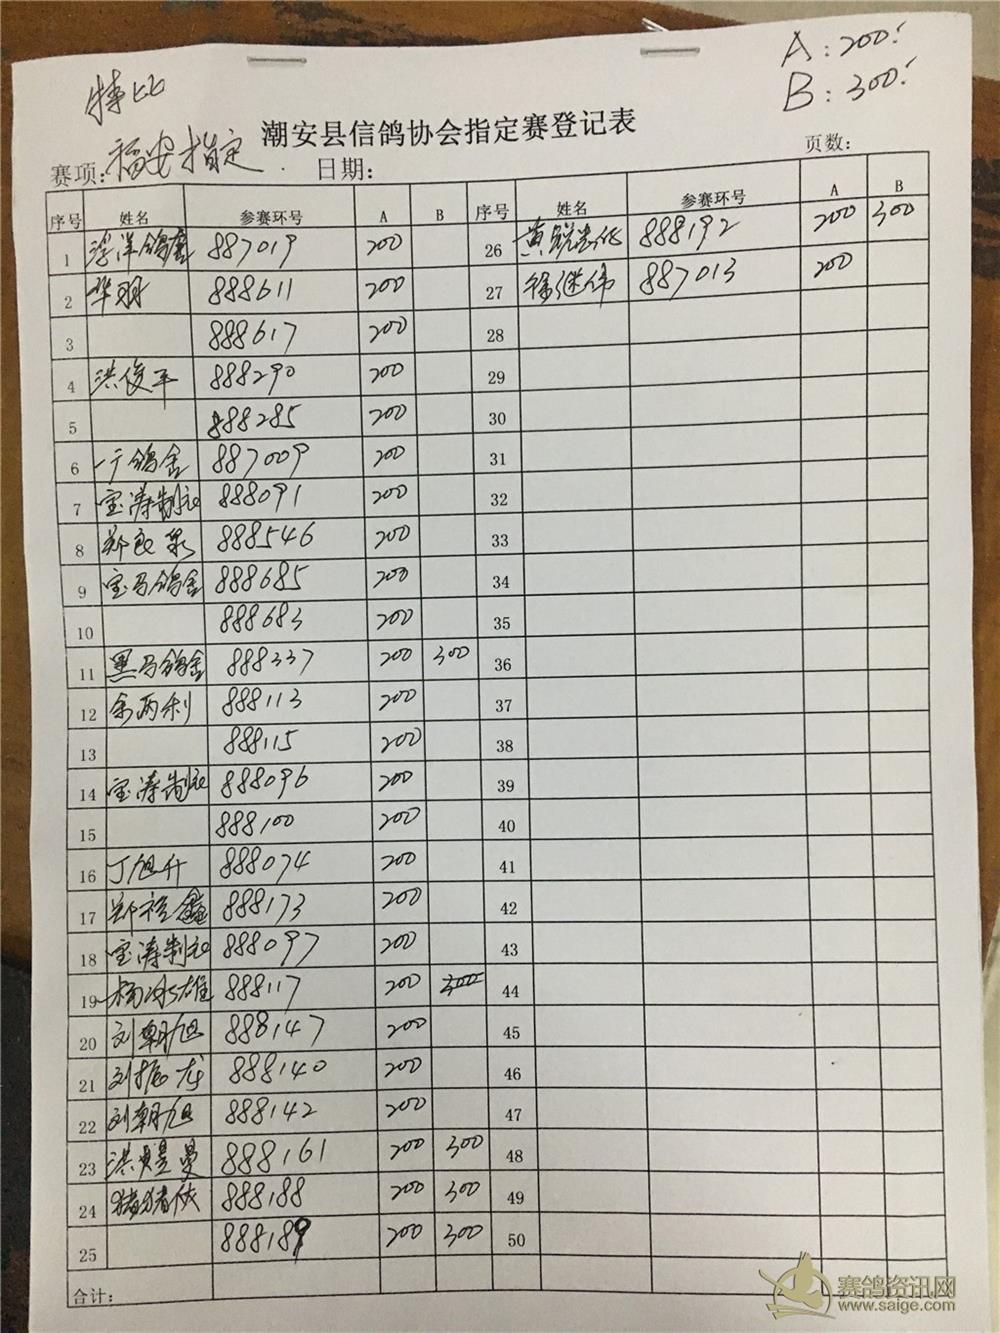 特比
A：200.
B：300.
潮安县信鸽协会指定赛登记表
赛项：福安指定 日期： 页数：
序号 姓名 参赛环号 A B 序号 姓名 参赛环号 A B
1 浮洋鸽舍 887019 200 26 888192 200 300
2 华朋 888611 200 27 徐继伟 887013 200
3 888617 200 28
4 洪俊平 888290 200 29
5 888285 200 30
6 一于鸽舍 887009 200 31
7 宝涛制衣 888091 200 32
8 郑良泉 888546 200 33
9 宝马鸽舍 888685 200 34
10 888683 200 35
11 黑马鸽舍 888337 200 300 36
12 余两利 888113 200 37
13 888115 200 38
14 宝涛制衣 888096 200 39
15 888100 200 40
16 丁旭升 888074 200 41
17 888173 200 42
18 宝涛制衣 888097 200 43
19 杨冰雄 888117 200 300 44
20 刘朝旭 888147 200 45
21 刘振龙 888140 200 46
22 刘朝旭 888142 200 47
23 洪煜曼 888161 200 300 48
24 猪猪侠 888188 200 300 49
25 888189 200 300 50
合计：
赛鸽资讯网
www.saige.com